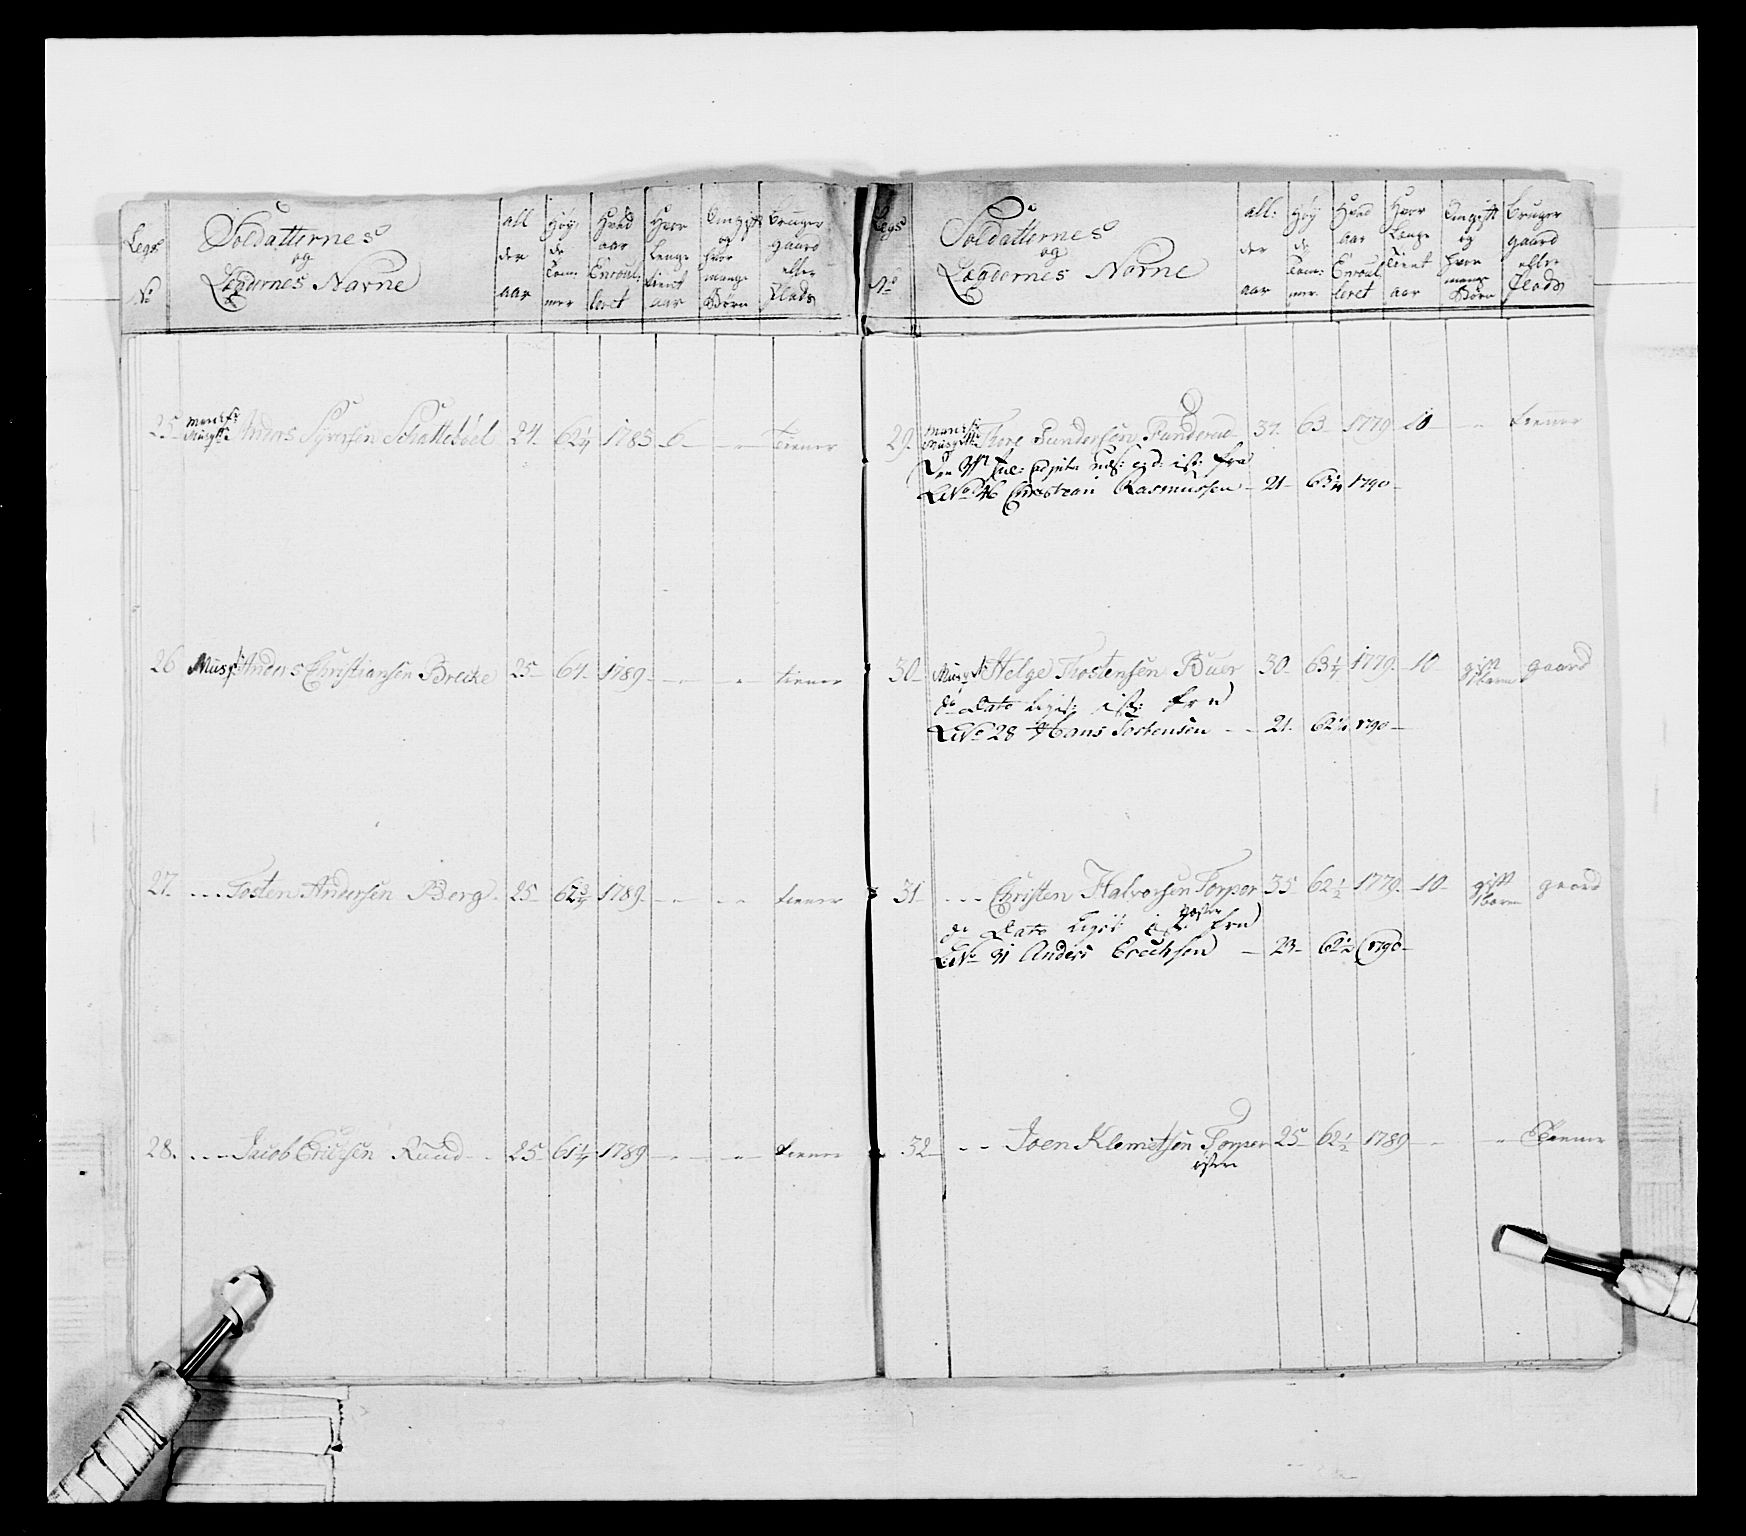 Legs No
Soldatternes og Legdernes Navne
all der aar
Høy de Tom: mer
Hvad aar Enroul: leret
Hvor Lenge tient aar
Om gift og hvor mange Børn
Bruger gaard eller Plads
25 Anders Syversen Schattebøel 24 62 1/4 1783 6 - " - tiener
26 Musq: Anders Christiansen Brecke 25 - 64 - 1789 - " - " - tiener
27. --- Tosten Andersen Berg. 25 - 62 3/4 1789 - " - " - tiener
28. --- Jacob Erichsen Ruud - 25 61 1/4 1789 - " - " - tiener
Legs No
Soldatternes og Legdernes Navne
all: der aar
Høy de Tom: mer.
Hvad aar Enroul leret
Hvor Lenge tient aar
Om gift og hvor mange Børn
Bruger gaard eller Plads
29. Thore Gundersøn Funderud 37. 63 - 1779 - 10 - " tiener
fra
LNo 46 Christian Rasmussen - 21 - 63 1/4 1790 -
30 - Musq: Helge Tostensen Buer 30 - 63 1/4 1779 - 10 - gift 1 barn gaard
do Dato fra
LNo 28 Hans Tostensen - - 21. 62 1/4 1790 -
31 - - - Christen Halvorsen Torper 35 - 62 1/2 1779 - 10 - gift 1 barn gaard
vester
do Dato fra
LNo 31 Anders Erichsen - 23 - 62 1/4 1790 -
32 - - - Joen Klemetsen Torper 25 - 62 1/2 1789 - - " Tienner
øster